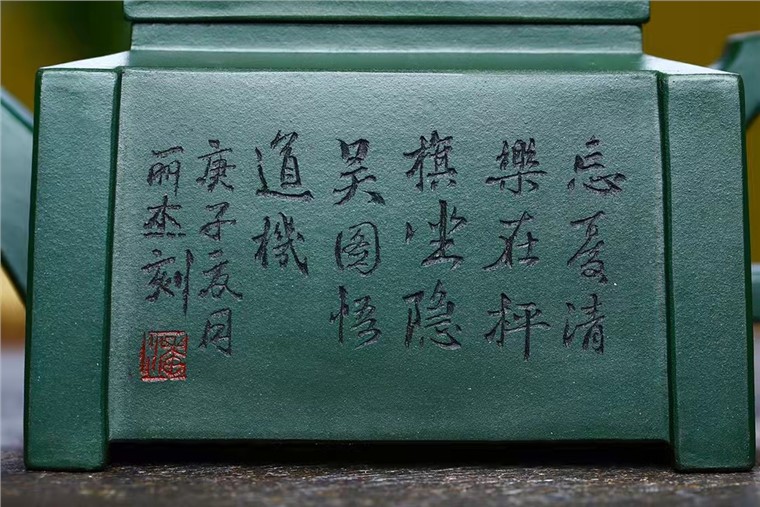 忘憂清
樂在枰
棋坐隐
吴图悟
道機
庚子夏月
丽杰刻